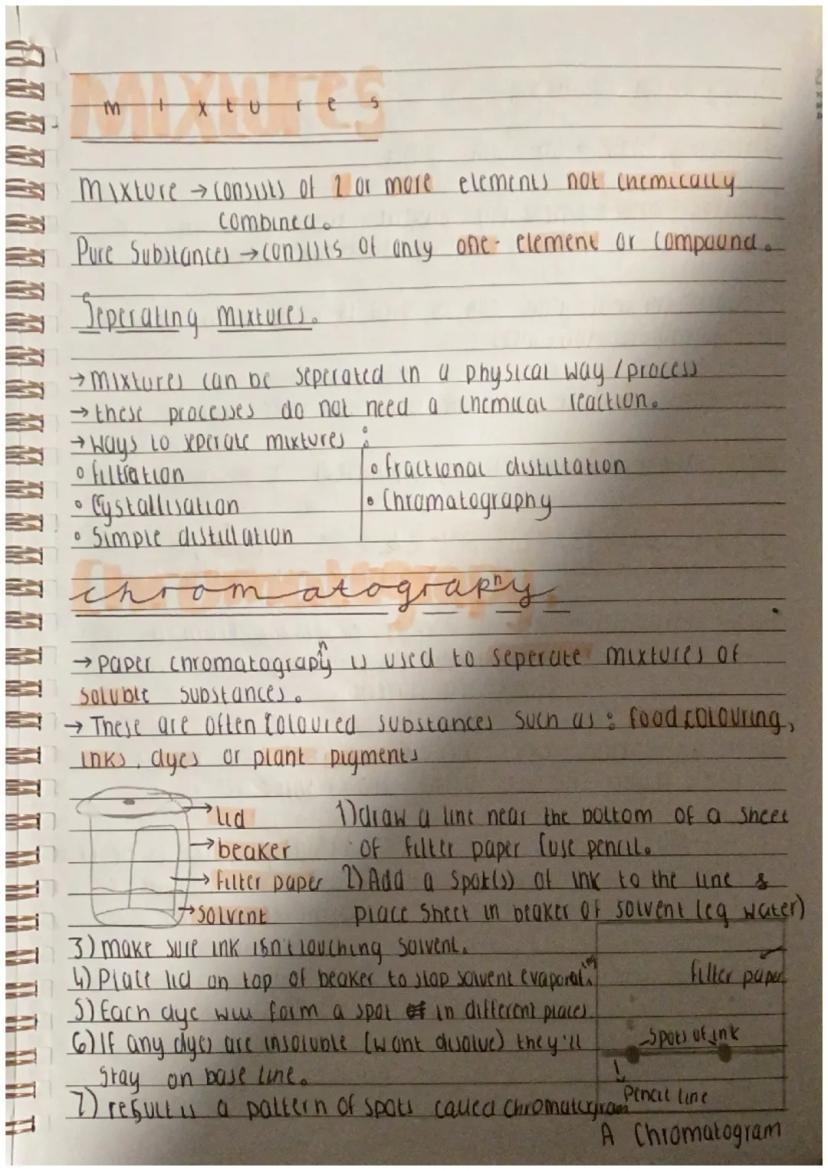 Mixtures
mixtures
Mixture → consists of 2 or more elements not chemically
combined.
Pure Substances → consists of only one element or compound.
Seperating mixtures.
→ mixtures can be seperated in a physical way / process
→ these processes do not need a chemical reaction.
→ ways to seperate mixtures :
• filtration
• Crystallisation
• Simple distillation
• fractional distillation
• Chromatography
chromatography.
→ paper chromatography is used to seperate mixtures of
soluble substances.
→ These are often coloured substances such as : food colouring,
inks, dyes or plant pigments
→ lid
→ beaker
→ filter paper
→ solvent
1) draw a line near the bottom of a sheet
of filter paper (use pencil.
2) Add a spot(s) of ink to the line &
place sheet in beaker of solvent (eg water)
3) make sure ink isn't touching solvent.
4) Place lid on top of beaker to stop solvent evaporating.
5) Each dye will form a spot in different places
6) If any dyes are insoluble (wont disolve) they'll
stay on base line.
7) result is a pattern of spots called chromatogram
filter paper
Spots of ink
Pencil line
A Chromatogram